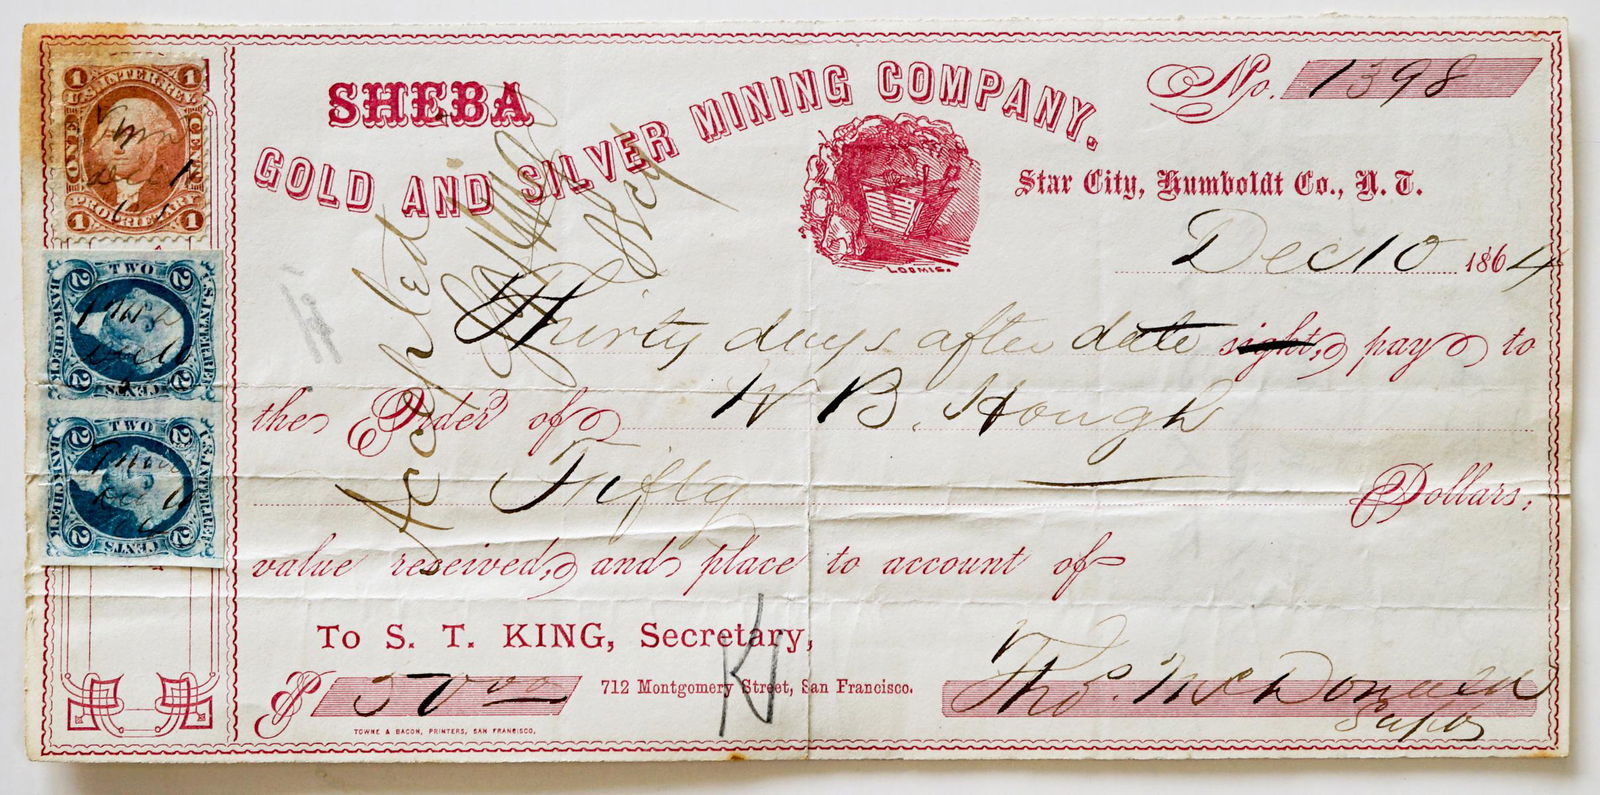 SHEBA
GOLD AND SILVER MINING COMPANY.
No. 1398
Star City, Humboldt Co., N. T.
Dec 10 1864
LOOMIS.
Thirty days after date sight, pay to
the Order of W B. Hough
Fifty Dollars,
value received, and place to account of
To S. T. KING, Secretary,
712 Montgomery Street, San Francisco.
$ 50 00
Thos. McDonald
Supt
TOWNE & BACON, PRINTERS, SAN FRANCISCO.
Accepted
Secy
K
1 U.S. INTER. REV. 1
ONE CENT
1 PROPRIETARY 1
2 TWO 2
U.S. INTER. REV.
BANK CHECK
2 CENTS 2
2 TWO 2
U.S. INTER. REV.
BANK CHECK
2 CENTS 2